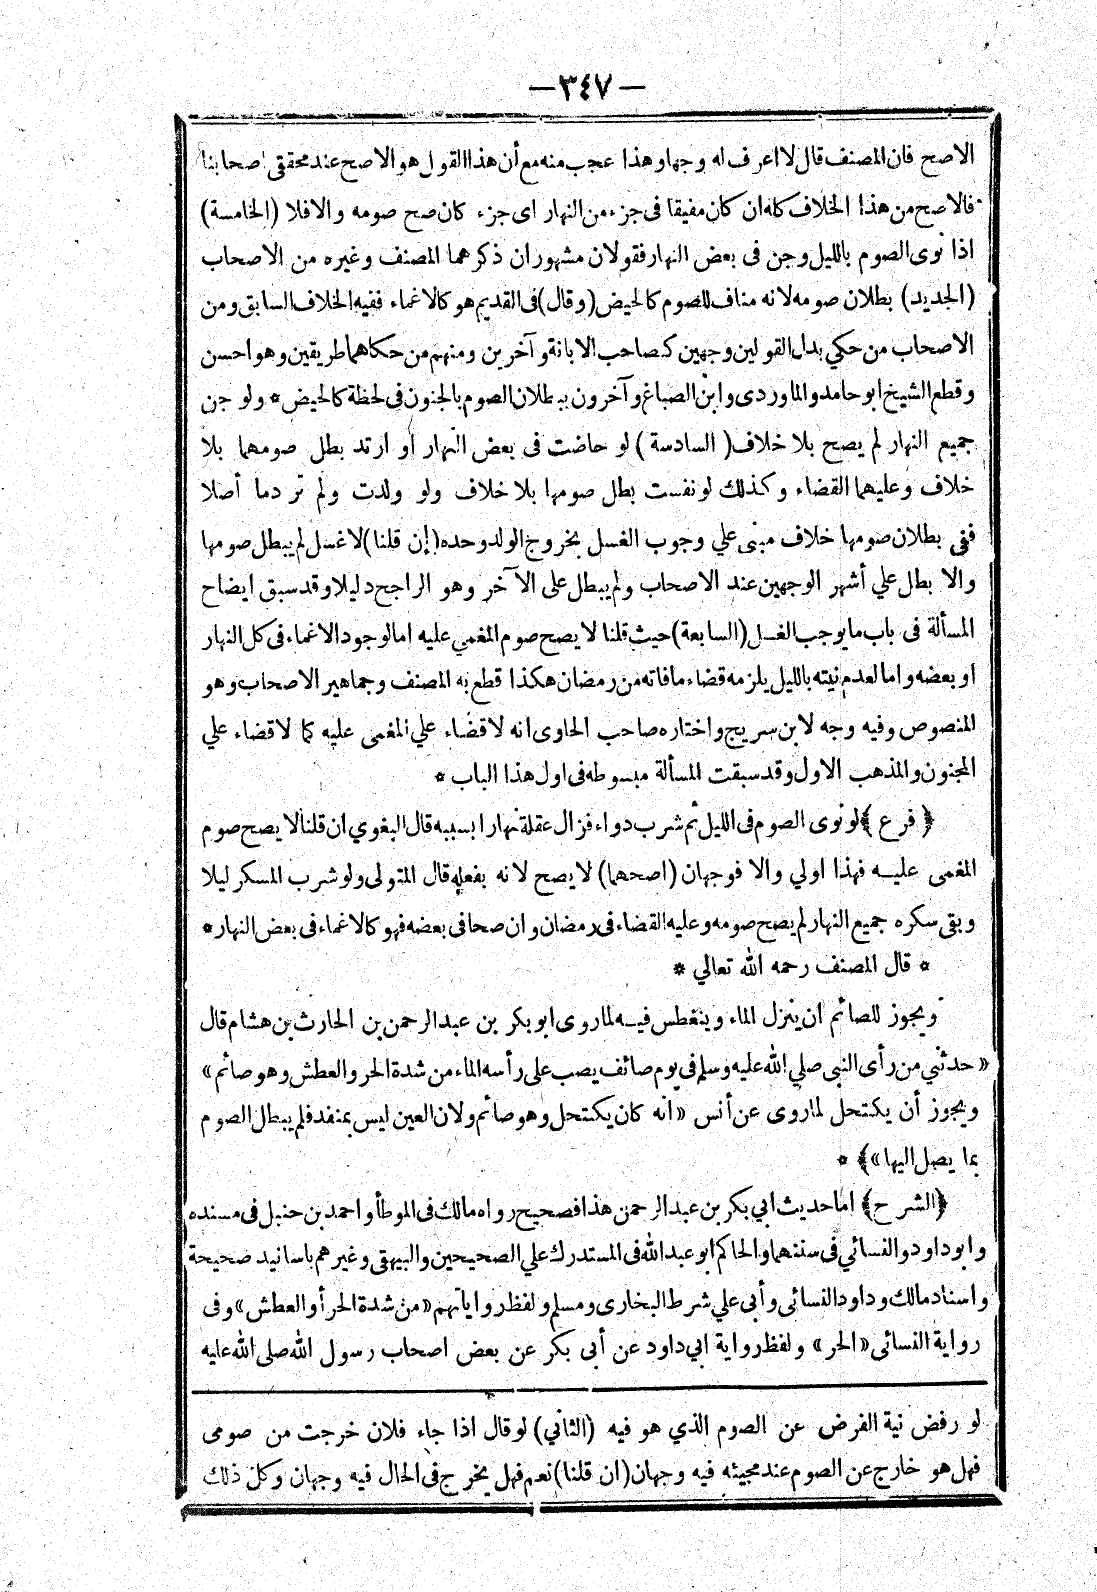 —٣٤٧—
الاصح فان المصنف قال لا اعرف له وجها وهذا عجب منه مع أن هذا القول هو الاصح عند محققي اصحابنا
فالاصح من هذا الخلاف كله ان كان مفيقا فى جزء من النهار اى جزء كان صح صومه والافلا (الخامسة)
اذا نوى الصوم بالليل وجن فى بعض النهار فقولان مشهوران ذكرهما المصنف وغيره من الاصحاب
(الجديد) بطلان صومه لانه مناف للصوم كالحيض (وقال) فى القديم هو كالاغماء ففيه الخلاف السابق ومن
الاصحاب من حكي بدل القولين وجهين كصاحب الابانة وآخرين ومنهم من حكاهما طريقين وهو احسن
وقطع الشيخ ابو حامد والماوردى وابن الصباغ وآخرون ببطلان الصوم بالجنون فى لحظة كالحيض * ولو جن
جميع النهار لم يصح بلا خلاف (السادسة) لو حاضت فى بعض النهار أو ارتد بطل صومهما بلا
خلاف وعليهما القضاء وكذلك لو نفست بطل صومها بلا خلاف ولو ولدت ولم تر دما أصلا
ففى بطلان صومها خلاف مبنى علي وجوب الغسل بخروج الولد وحده (إن قلنا) لا غسل لم يبطل صومها
والا بطل علي أشهر الوجهين عند الاصحاب ولم يبطل على الآخر وهو الراجح دليلا وقد سبق ايضاح
المسألة فى باب ما يوجب الغسل (السابعة) حيث قلنا لا يصح صوم المغمي عليه اما لوجود الاغماء فى كل النهار
او بعضه واما لعدم نيته بالليل يلزمه قضاء ما فاته من رمضان هكذا قطع به المصنف وجماهير الاصحاب وهو
المنصوص وفيه وجه لابن سريج واختاره صاحب الحاوى انه لا قضاء علي المغمى عليه كما لا قضاء علي
المجنون والمذهب الاول وقد سبقت المسألة مبسوطه فى اول هذا الباب *
﴿فرع﴾ لو نوى الصوم فى الليل ثم شرب دواء فزال عقله نهارا بسببه قال البغوي ان قلنا لا يصح صوم
المغمى عليه فهذا اولي والا فوجهان (اصحهما) لا يصح لانه بفعله قال المتولى ولو شرب المسكر ليلا
وبقى سكره جميع النهار لم يصح صومه وعليه القضاء فى رمضان وان صحا فى بعضه فهو كالاغماء فى بعض النهار *
* قال المصنف رحمه الله تعالي *
ويجوز للصائم ان ينزل الماء وينغطس فيه لما روى ابو بكر بن عبد الرحمن بن الحارث بن هشام قال
« حدثني من رأى النبى صلي الله عليه وسلم فى يوم صائف يصب على رأسه الماء من شدة الحر والعطش وهو صائم »
ويجوز أن يكتحل لما روى عن أنس « انه كان يكتحل وهو صائم ولان العين ليس بمنفد فلم يبطل الصوم
بما يصل اليها »﴾ *
﴿الشرح﴾ اما حديث ابي بكر بن عبد الرحمن هذا فصحيح رواه مالك فى الموطأ واحمد بن حنبل فى مسنده
وابو داود والنسائي فى سننهما والحاكم ابو عبد الله فى المستدرك علي الصحيحين والبيهقى وغيرهم باسانيد صحيحة
واسناد مالك وداود النسائى وأبى علي شرط البخارى ومسلم ولفظ رواياتهم « من شدة الحر أو العطش » وفى
رواية النسائى « الحر » ولفظ رواية ابي داود عن أبى بكر عن بعض اصحاب رسول الله صلى الله عليه
لو رفض نية الفرض عن الصوم الذي هو فيه (الثاني) لو قال اذا جاء فلان خرجت من صومى
فهل هو خارج عن الصوم عند مجيئه فيه وجهان (ان قلنا) نعم فهل يخرج فى الحال فيه وجهان وكل ذلك